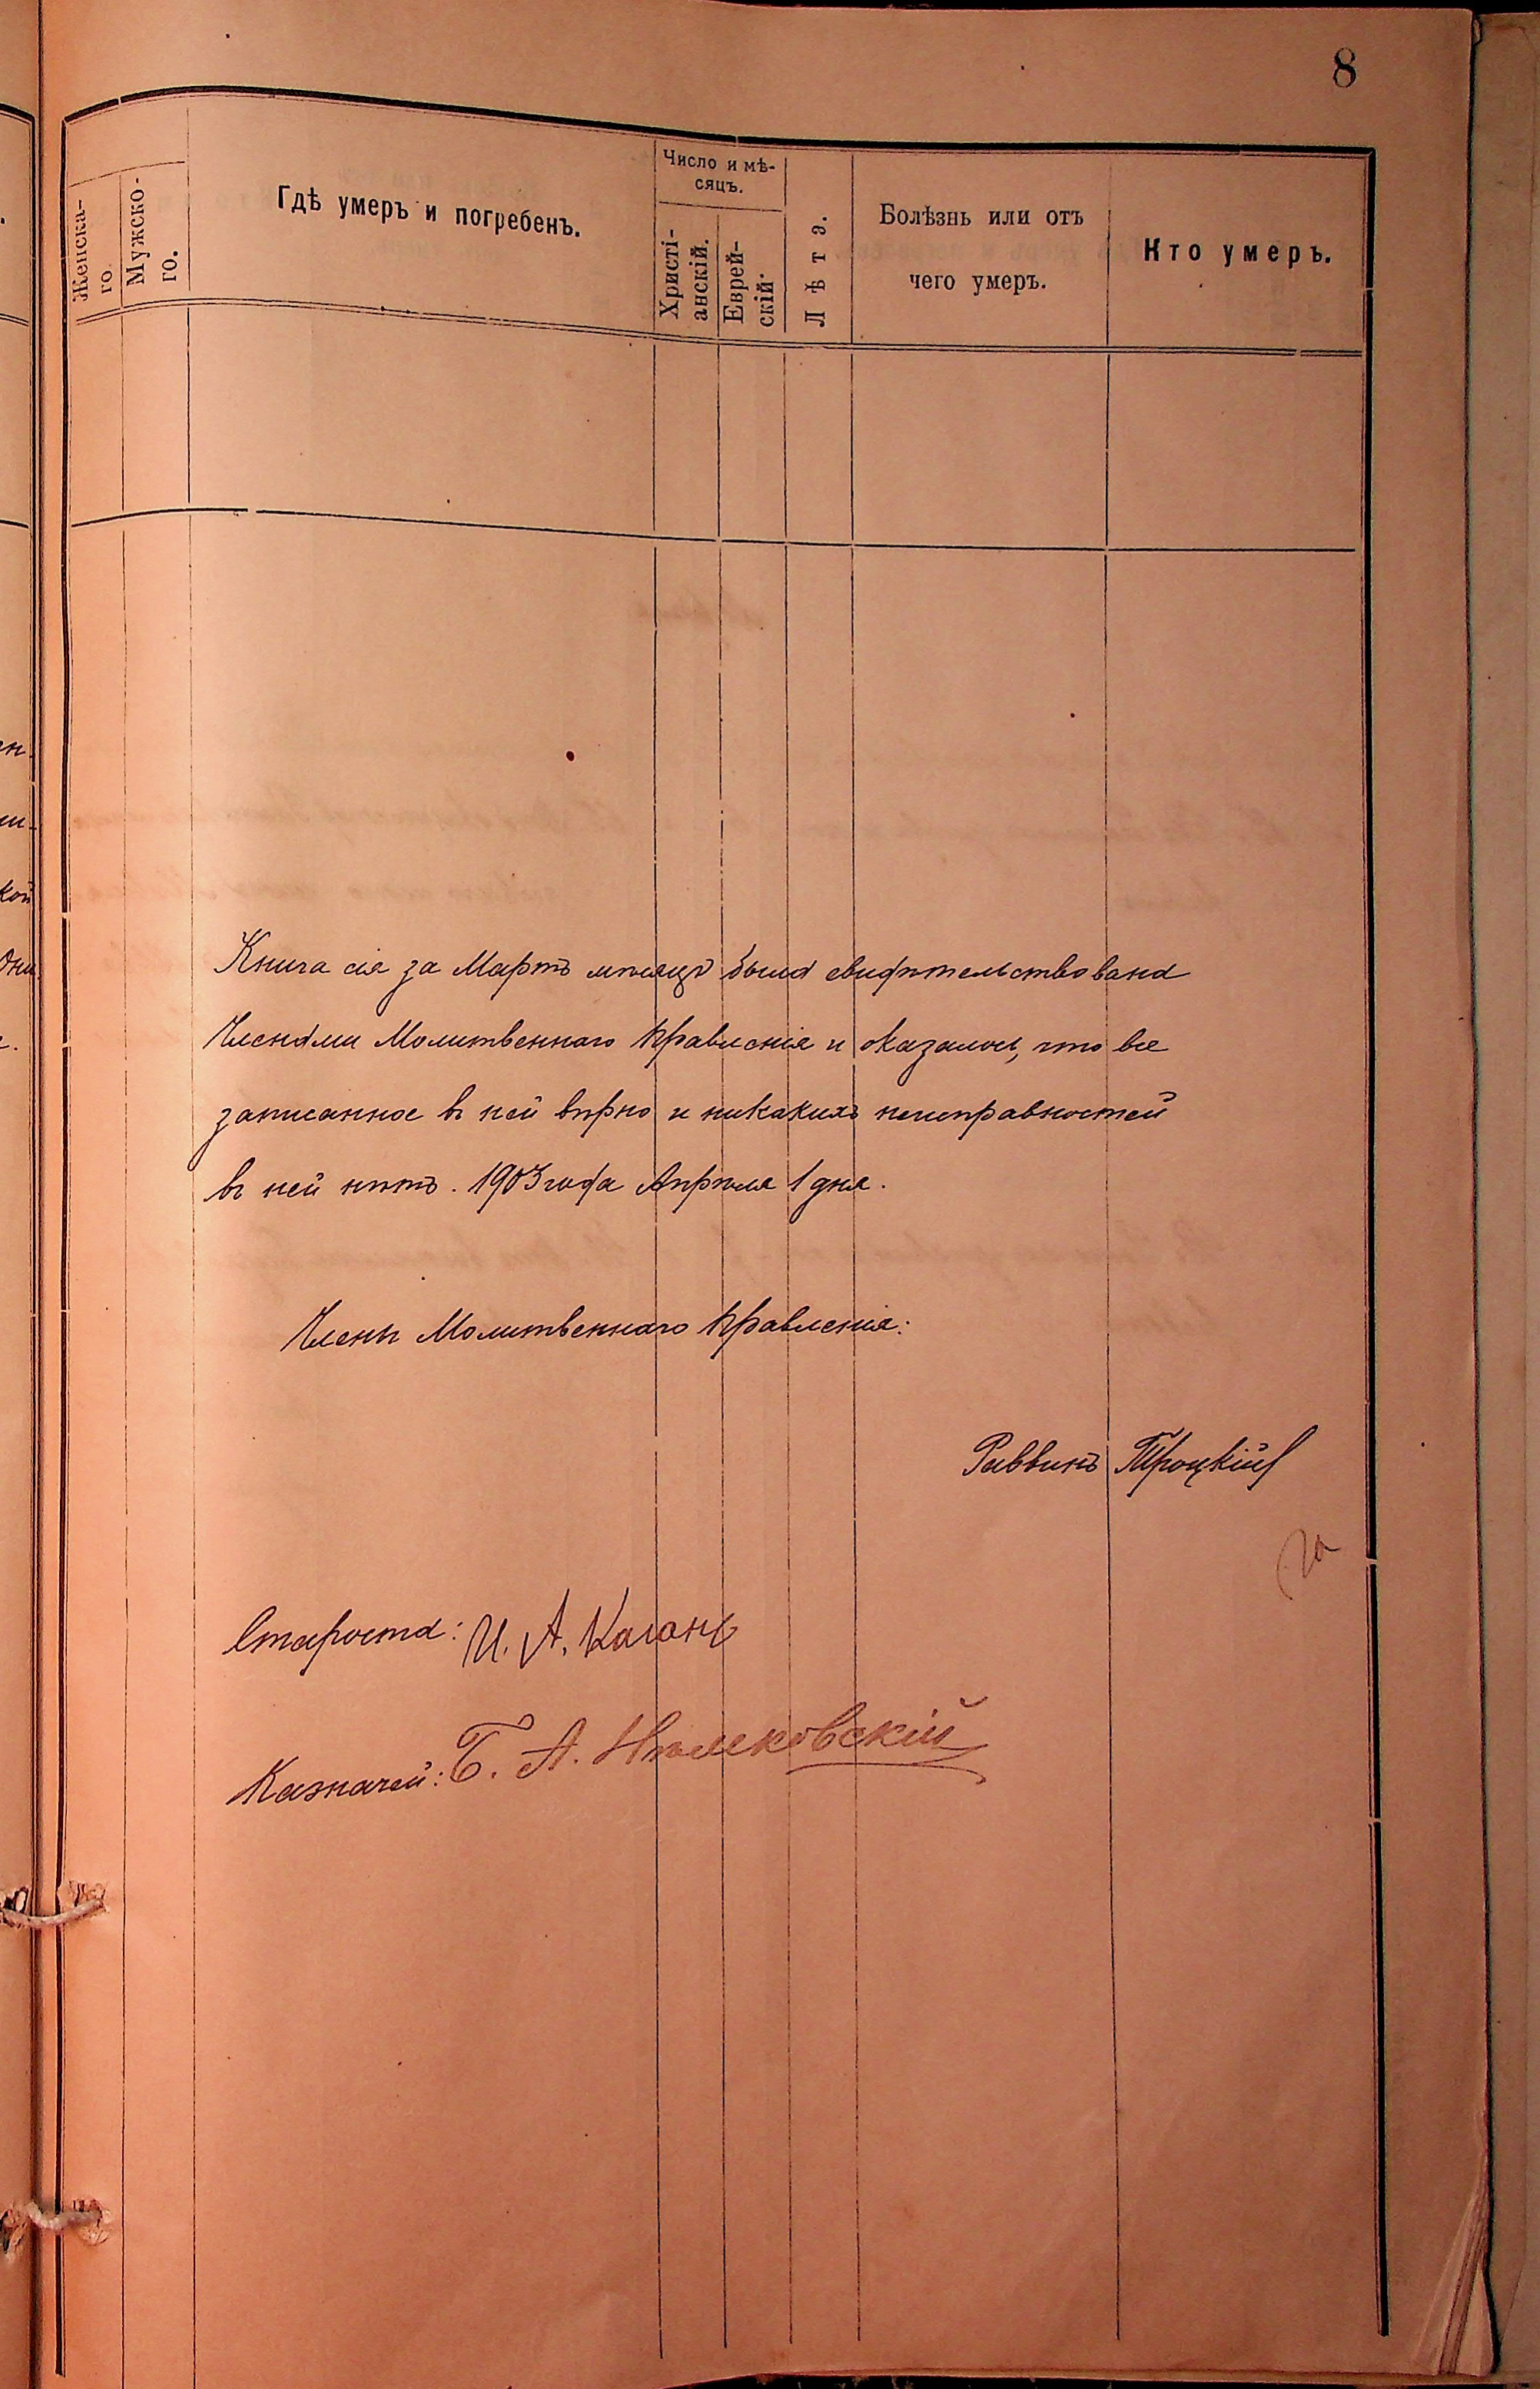 8
Женска-
го.
Мужско-
го.
Гдѣ умеръ и погребенъ.
Число и мѣ-
сяцъ.
Христі-
анскій.
Еврей-
скій.
Лѣта.
Болѣзнь или отъ
чего умеръ.
Кто умеръ.
Книга сія за Мартъ мѣсяцъ была свидѣтельствована
Членами Молитвеннаго Правленія и оказалось, что все
записанное въ ней вѣрно и никакихъ неисправностей
въ ней нѣтъ. 1903 года Апрѣля 1 дня.
Члены Молитвеннаго Правленія:
Раввинъ Троцкій
Староста: И. А. Каганъ
Казначей: Б. А.